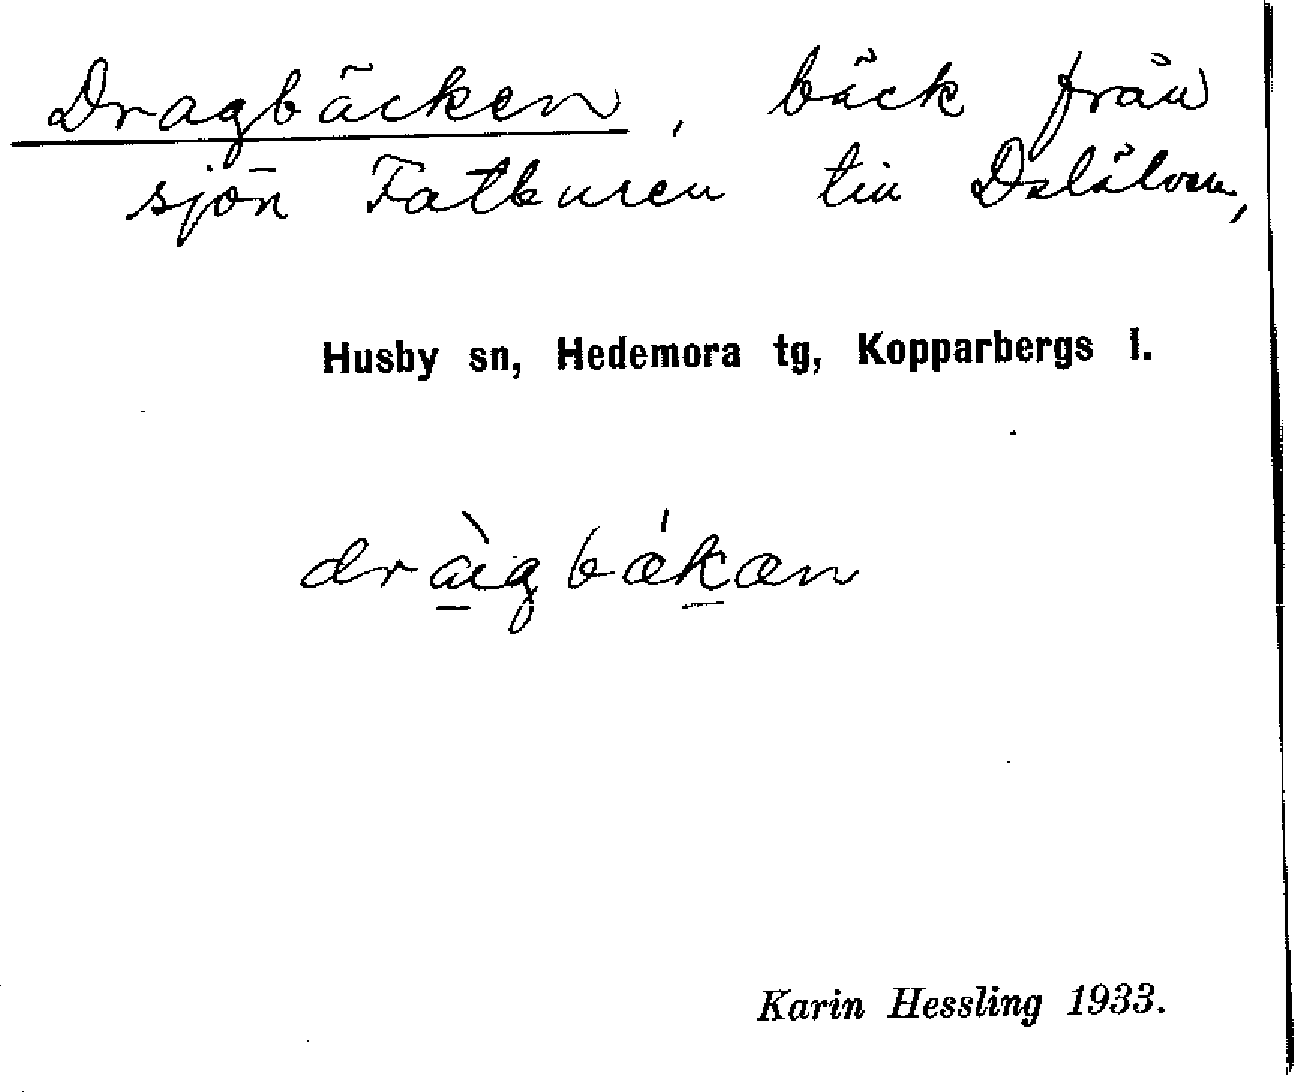 Dragbäcken, bäck från
sjön Fatburen till Dalälven,
Husby sn, Hedemora tg, Kopparbergs l.
Karin Hessling 1933.